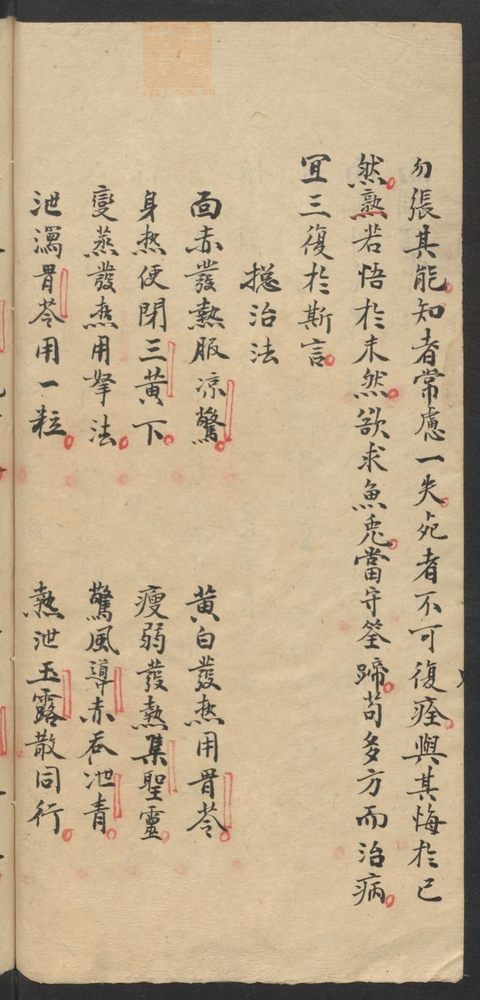 勿張其能知者常慮一失死者不可復痊與其悔於已
然孰若悟於未然欲求魚兎當守筌蹄苟多方而治病
宜三復於斯言
㧾治法
面赤發熱服凉驚 黄白發热用胃苓
身热便閉三黄下 瘦弱發熱集聖靈
變蒸發热用拏法 驚風導赤吞泄青
泄瀉胃苓用一粒 熱泄玉露散同行